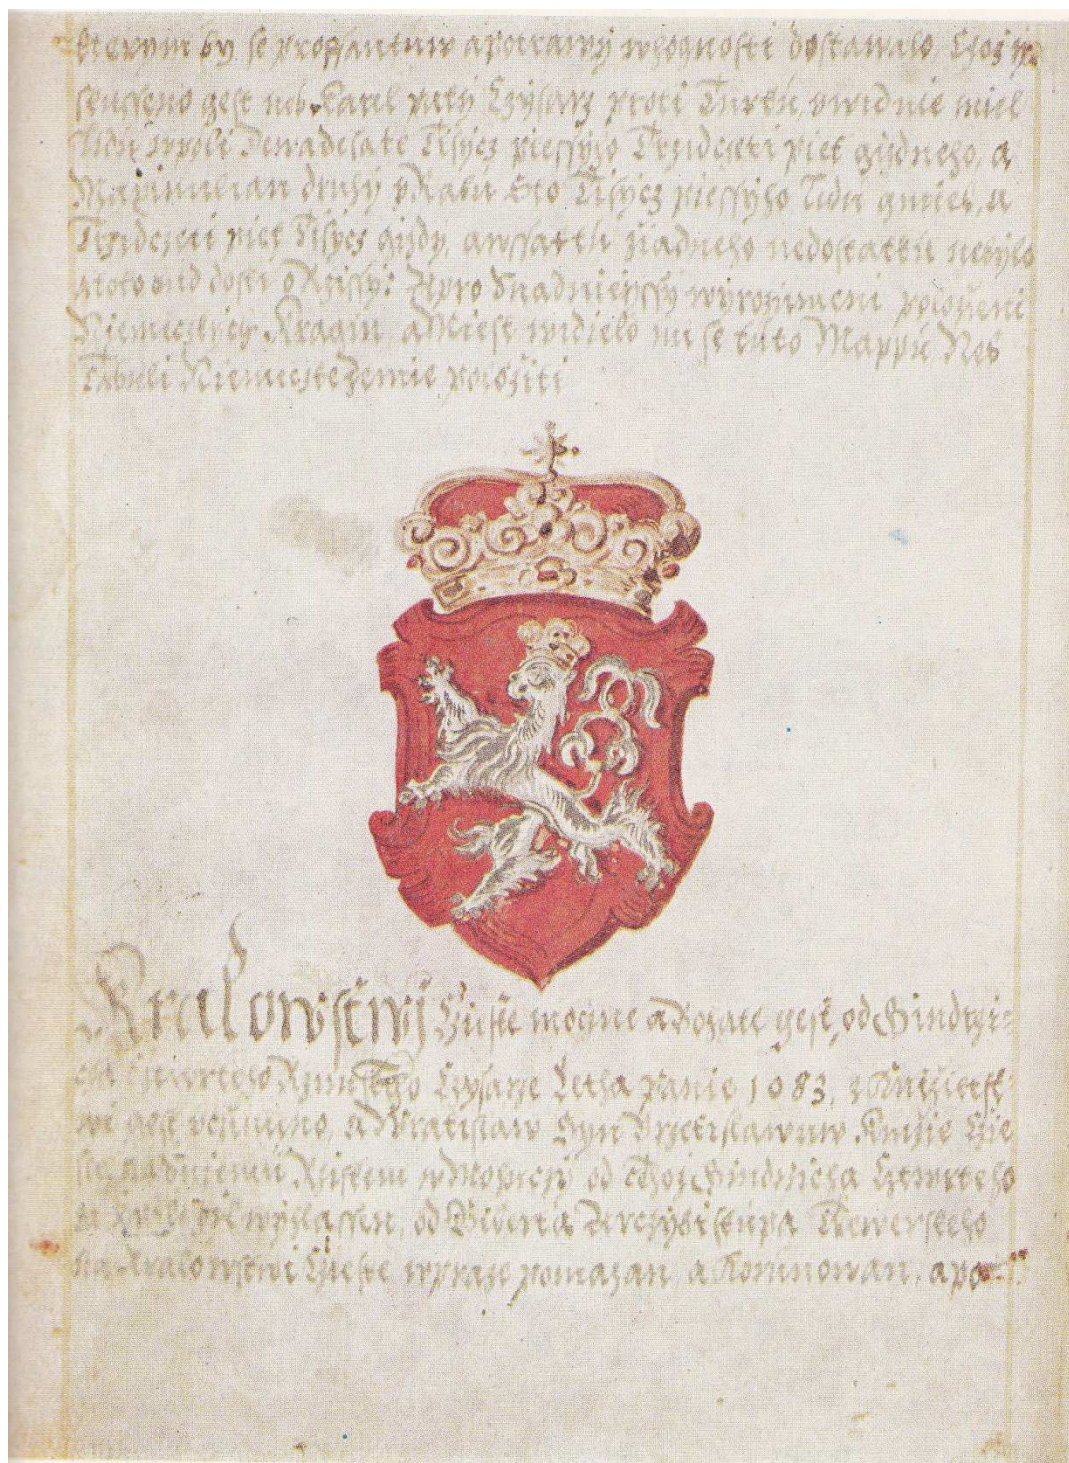 kterým by se proffantuw a potrawy w hognosti dostawalo,
gest neb Karel pátý Czýsarz proti Turku, miel
lidu w poli Dewadesate Tisýcz piessýho Trzidczeti piet gizdneho, a
Maximilian druhý v Rabu Sto Tisýcz piessýho Lidu gmiel, a
Trzidczeti piet Tisýcz gizdy, a wssakth žiadneho nedostatku nebylo
a toto bud dosti o Rzissy: A pro snadnieyssy wyrozumeni položieni
Niemeczkých Kragin a Miest widielo mi se tuto Mappu Neb
Tabuli Niemeczke Zemie položiti
Kralowstwj Czieske mocne a Bohate gest, od Gindrzi=
cha Cztwrteho Rzimskeho Czysarze Letha Panie 1083, z Knižietst=
wi gest vczinieno, a Wratislaw Syn Brzetislawuw Knižie Czie
ske na Sniemu Rzisskem w Mohuczy od tehož Gindrzicha Cztwrteho
za Krale wyhlassen, od Arczybiskupa Trewerskeho
na Kralowstwi Czieske w Praze pomazan, a Korunowan, a po